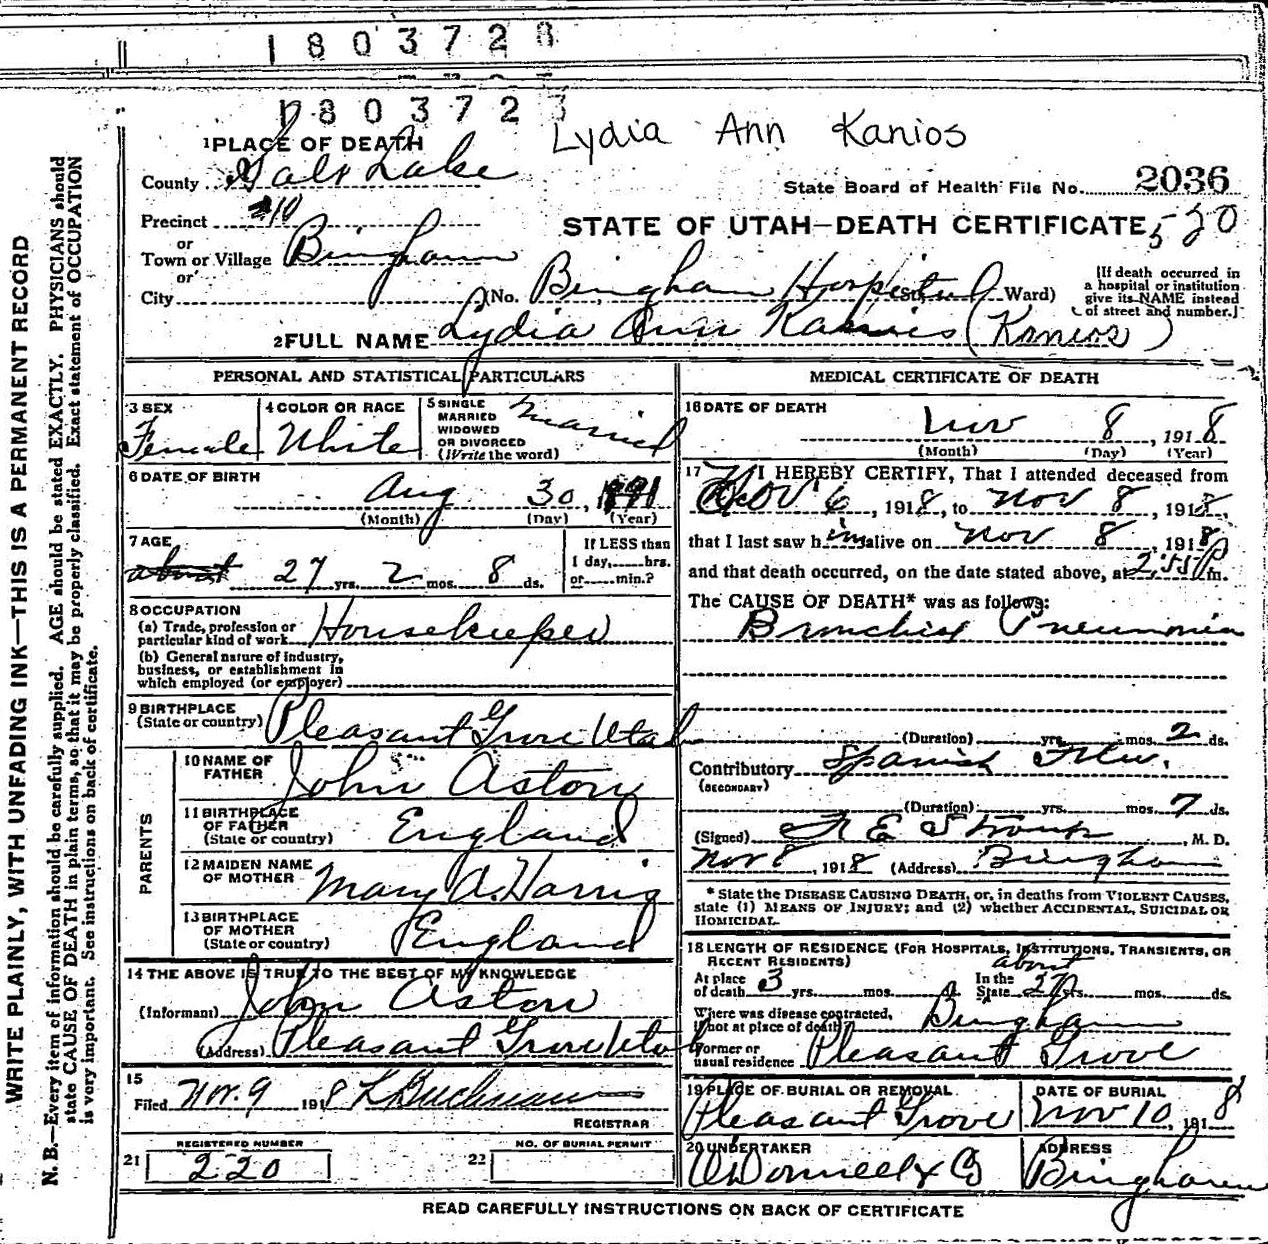 1803728
180372
Lydia Ann Kanios
1 PLACE OF DEATH
County Salt Lake
State Board of Health File No. 2036
Precinct 10
STATE OF UTAH—DEATH CERTIFICATE 520
or
Town or Village Bingham
or
City (No. Bingham Hospital St. Ward)
[If death occurred in a hospital or institution give its NAME instead of street and number.]
2 FULL NAME Lydia Ann Kanios (Kanios)
PERSONAL AND STATISTICAL PARTICULARS
3 SEX Female
4 COLOR OR RACE White
5 SINGLE MARRIED WIDOWED OR DIVORCED (Write the word) Married
6 DATE OF BIRTH
Aug 30, 1891
(Month) (Day) (Year)
7 AGE
about 27 yrs. 2 mos. 8 ds.
If LESS than 1 day, hrs. or min.?
8 OCCUPATION
(a) Trade, profession or particular kind of work Housekeeper
(b) General nature of industry, business, or establishment in which employed (or employer)
9 BIRTHPLACE (State or country) Pleasant Grove Utah
PARENTS
10 NAME OF FATHER John Aston
11 BIRTHPLACE OF FATHER (State or country) England
12 MAIDEN NAME OF MOTHER Mary A. Harris
13 BIRTHPLACE OF MOTHER (State or country) England
14 THE ABOVE IS TRUE TO THE BEST OF MY KNOWLEDGE
(Informant) John Aston
(Address) Pleasant Grove Utah
15
Filed Nov. 9 1918
REGISTRAR
REGISTERED NUMBER
21 220
NO. OF BURIAL PERMIT
22
MEDICAL CERTIFICATE OF DEATH
16 DATE OF DEATH
Nov 8, 1918
(Month) (Day) (Year)
17 I HEREBY CERTIFY, That I attended deceased from
Nov 6, 1918, to Nov 8, 1918,
that I last saw him alive on Nov 8, 1918
and that death occurred, on the date stated above, at 2:55 P m.
The CAUSE OF DEATH* was as follows:
Bronchial Pneumonia
(Duration) yrs. mos. 2 ds.
Contributory Spanish Flu.
(SECONDARY)
(Duration) yrs. mos. 7 ds.
(Signed) F E Straup, M. D.
Nov 8, 1918 (Address) Bingham
* State the DISEASE CAUSING DEATH, or, in deaths from VIOLENT CAUSES,
state (1) MEANS OF INJURY; and (2) whether ACCIDENTAL, SUICIDAL OR
HOMICIDAL.
18 LENGTH OF RESIDENCE (FOR HOSPITALS, INSTITUTIONS, TRANSIENTS, OR
RECENT RESIDENTS)
At place of death 3 yrs. mos. In the State about 27 yrs. mos. ds.
Where was disease contracted, if not at place of death? Bingham
Former or usual residence Pleasant Grove
19 PLACE OF BURIAL OR REMOVAL Pleasant Grove
DATE OF BURIAL Nov 10, 1918
20 UNDERTAKER O'Donnell & Co
ADDRESS Bingham
READ CAREFULLY INSTRUCTIONS ON BACK OF CERTIFICATE
WRITE PLAINLY, WITH UNFADING INK—THIS IS A PERMANENT RECORD
N. B.—Every item of information should be carefully supplied. AGE should be stated EXACTLY. PHYSICIANS should
state CAUSE OF DEATH in plain terms, so that it may be properly classified. Exact statement of OCCUPATION
is very important. See instructions on back of certificate.